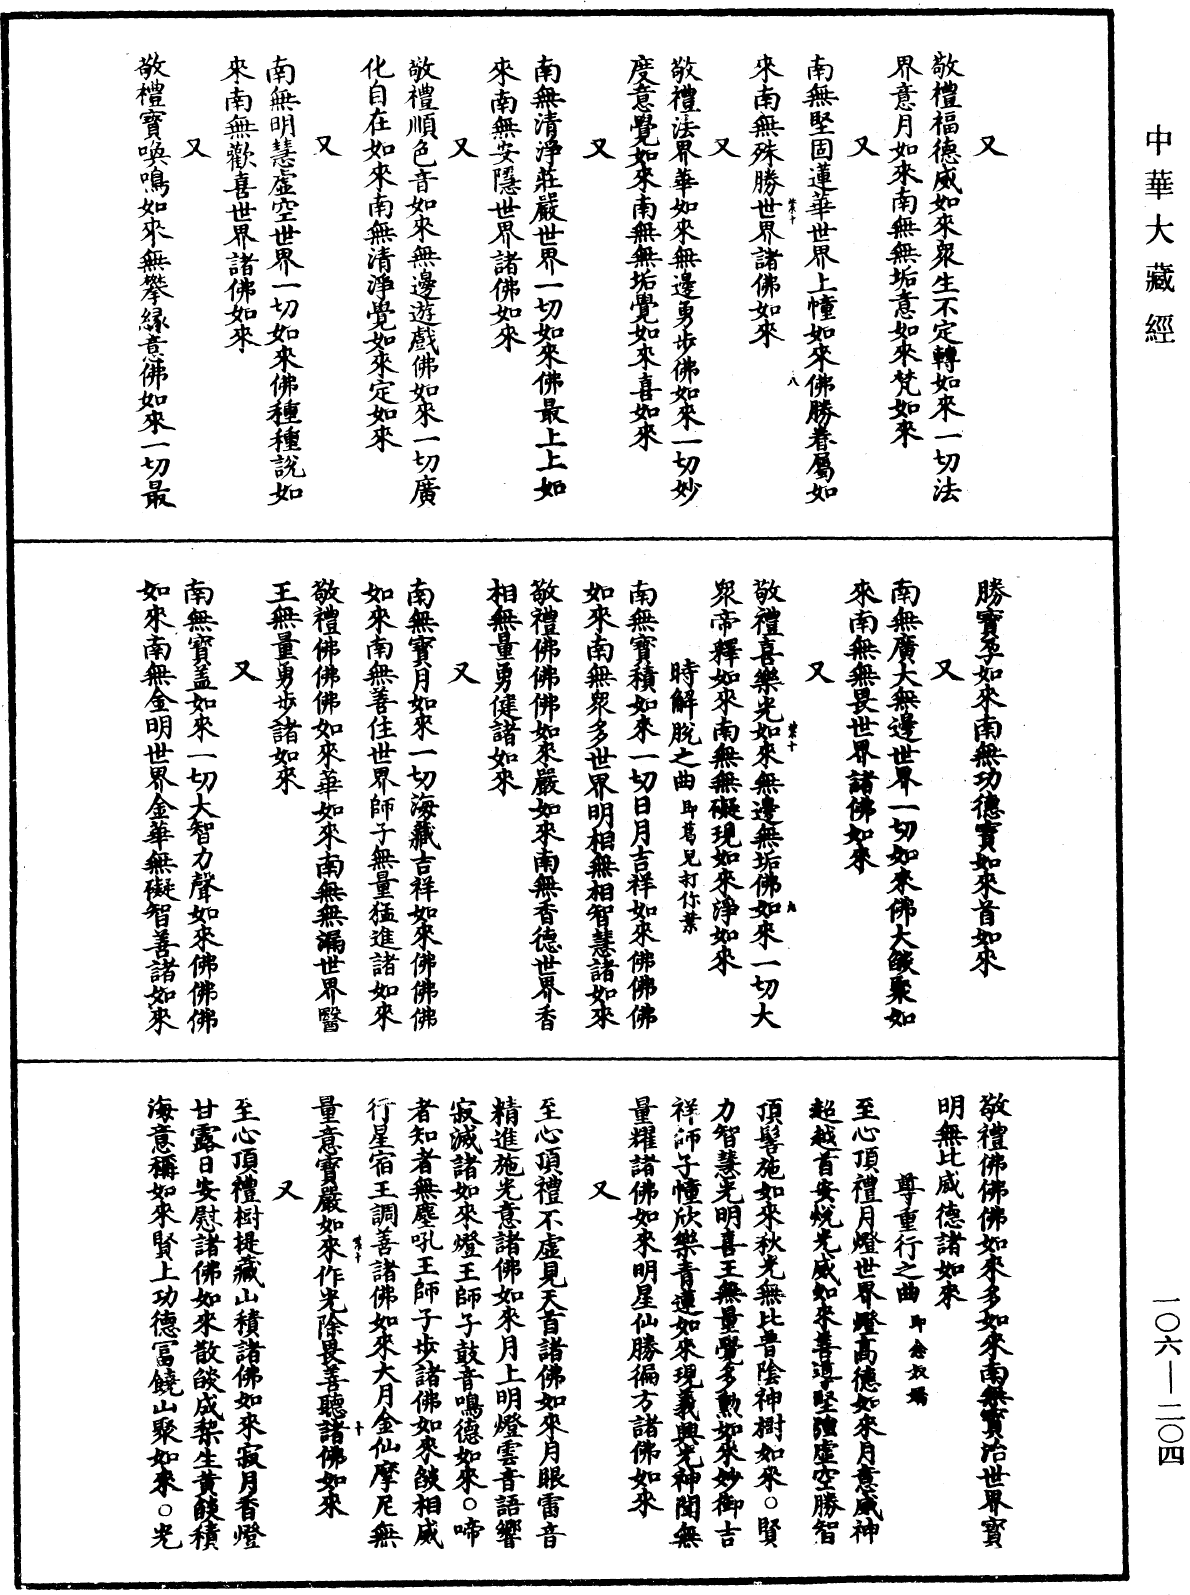 中華大藏經
又
敬禮福德威如來衆生不定轉如來一切法
界意月如來南無無垢意如來梵如來
又
南無堅固蓮華世界上幢如來佛勝眷屬如
來南無殊勝世界諸佛如來
又
敬禮法界華如來無邊勇步佛如來一切妙
度意覺如來南無無垢覺如來喜如來
又
南無清淨莊嚴世界一切如來佛最上上如
來南無安隱世界諸佛如來
又
敬禮順色音如來無邊遊戲佛如來一切廣
化自在如來南無清淨覺如來定如來
又
南無明慧虛空世界一切如來佛種種說如
來南無歡喜世界諸佛如來
又
敬禮寶喚鳴如來無攀緣意佛如來一切最
勝寶孕如來南無功德寶如來首如來
又
南無廣大無邊世界一切如來佛大燄聚如
來南無無畏世界諸佛如來
又
敬禮喜樂光如來無邊無垢佛如來一切大
衆帝釋如來南無無礙現如來淨如來
時解脫之曲 即葛兒打你葉
南無寶積如來一切日月吉祥如來佛佛佛
如來南無衆多世界明相無相智慧諸如來
敬禮佛佛佛如來嚴如來南無香德世界香
相無量勇健諸如來
又
南無寶月如來一切海藏吉祥如來佛佛佛
如來南無善住世界師子無量猛進諸如來
敬禮佛佛佛如來華如來南無無漏世界醫
王無量勇步諸如來
又
南無寶蓋如來一切大智力聲如來佛佛佛
如來南無金明世界金華無礙智善諸如來
敬禮佛佛佛如來多如來南無寶治世界寶
明無比威德諸如來
尊重行之曲 即
至心頂禮月燈世界燈高德如來月意威神
超越首安悅光威如來善導堅強虛空勝智
頂髻施如來秋光無比普陰神樹如來○賢
力智慧光明喜王無量覺多勳如來妙御吉
祥師子幢欣樂青蓮如來現義興光神聞無
量耀諸佛如來明星仙勝徧方諸佛如來
又
至心頂禮不虛見天首諸佛如來月眼雷音
精進施光意諸佛如來月上明燈雲音語響
寂滅諸如來燈王師子鼓音鳴德如來○啼
者知者無塵吼王師子步諸佛如來燄相威
行星宿王調善諸佛如來大月金仙摩尼無
量意寶嚴如來作光除畏善聽諸佛如來
又
至心頂禮樹提藏山積諸佛如來寂月香燈
甘露日安慰諸佛如來散燄成棃生黃燄積
海意稱如來賢上功德冨饒山聚如來○光
一〇六—二〇四